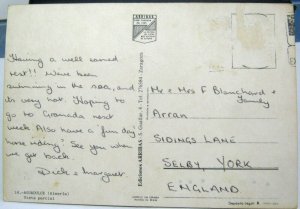 Having a well earned
rest!! We've been
swimming in the sea, and
its very hot. Hoping to
go to Granada next
week. Also have a 'fun day'
horse riding! See you when
we get back
Dick & Margaret
14.-AGUADULCE (Almería)
Vista parcial
ARRIBAS
Ediciones ARRIBAS
Zaragoza
Mr & Mrs F Blanchard &
Family
Arran
SIDINGS LANE
SELBY, YORK
ENGLAND
Depósito legal